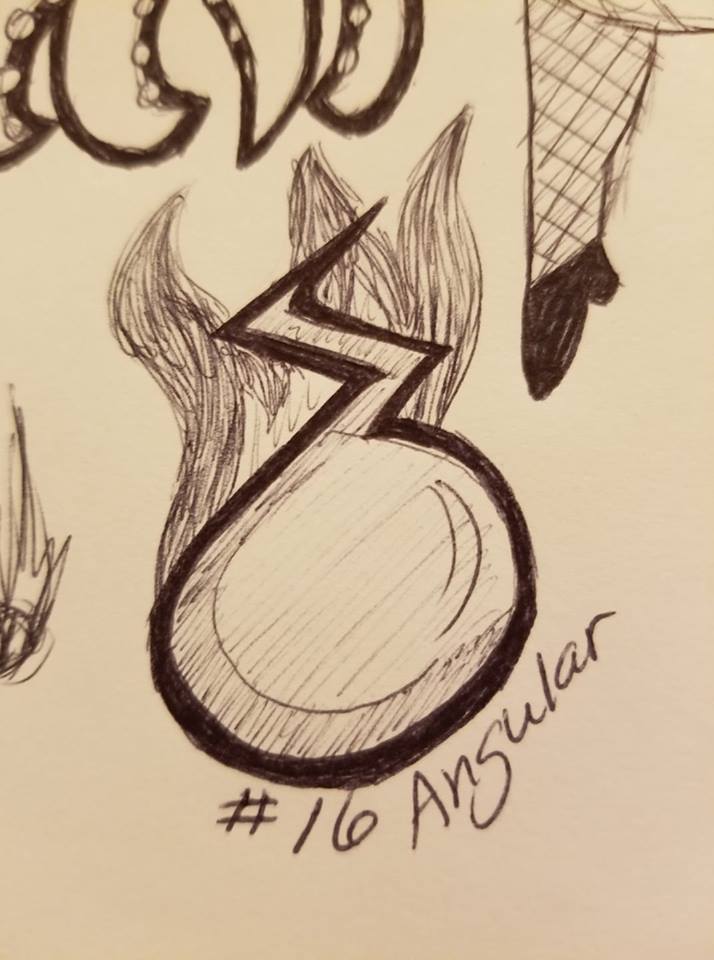 #16 Angular